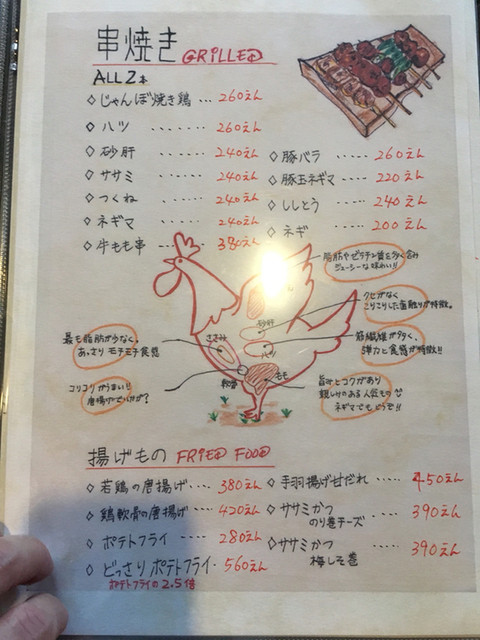 串焼き GRILLED
ALL 2本
◇じゃんぼ焼き鶏 … 260えん
◇ハツ ‥‥‥ 260えん
◇砂肝 ‥‥‥ 240えん
◇ササミ ‥‥‥ 240えん
◇つくね ‥‥‥ 240えん
◇ネギマ ‥‥‥ 240えん
◇牛もも串 ‥‥ 380えん
◇豚バラ ‥‥‥ 260えん
◇豚玉ネギマ ‥‥ 220えん
◇ししとう ‥‥‥ 240えん
◇ネギ ‥‥‥ 200えん
脂肪やゼラチン質を多く含み
ジューシーな味わい!!
クセがなく
こりこりした歯触りが特徴。
筋繊維が多く、
弾力と食感が特徴!!
旨みとコクがあり
親しみのある人気もの
ネギマでもどうぞ!!
最も脂肪が少なく、
あっさりモチモチ食感
コリコリがうまい!!
唐揚げでいかが?
砂肝
ささみ
ハツ
軟骨
もも
揚げもの FRIED FOOD
◇若鶏の唐揚げ ‥‥ 380えん
◇鶏軟骨の唐揚げ ‥‥ 420えん
◇ポテトフライ ‥‥ 280えん
◇どっさりポテトフライ‥ 560えん
ポテトフライの2.5倍
◇手羽揚げ甘だれ ‥‥ 450えん
◇ササミかつ
のり巻チーズ ‥‥ 390えん
◇ササミかつ
梅しそ巻 ‥‥ 390えん